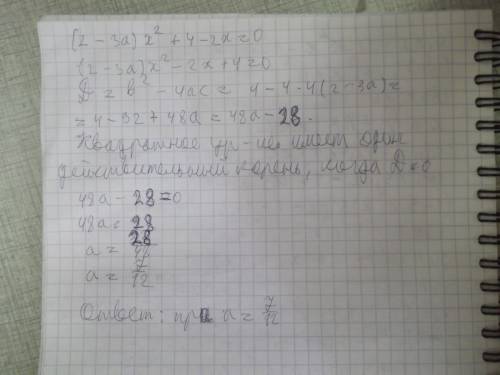 (2 - 3a) x² + 4 - 2x = 0
(2 - 3a) x² - 2x + 4 = 0
D = b² - 4ac = 4 - 4 · 4 (2 - 3a) =
= 4 - 32 + 48a = 48a - 28.
Квадратное ур-ие имеет один
действительный корень, когда D = 0
48a - 28 = 0
48a = 28
a = 28/48
a = 7/12
Ответ: при a = 7/12